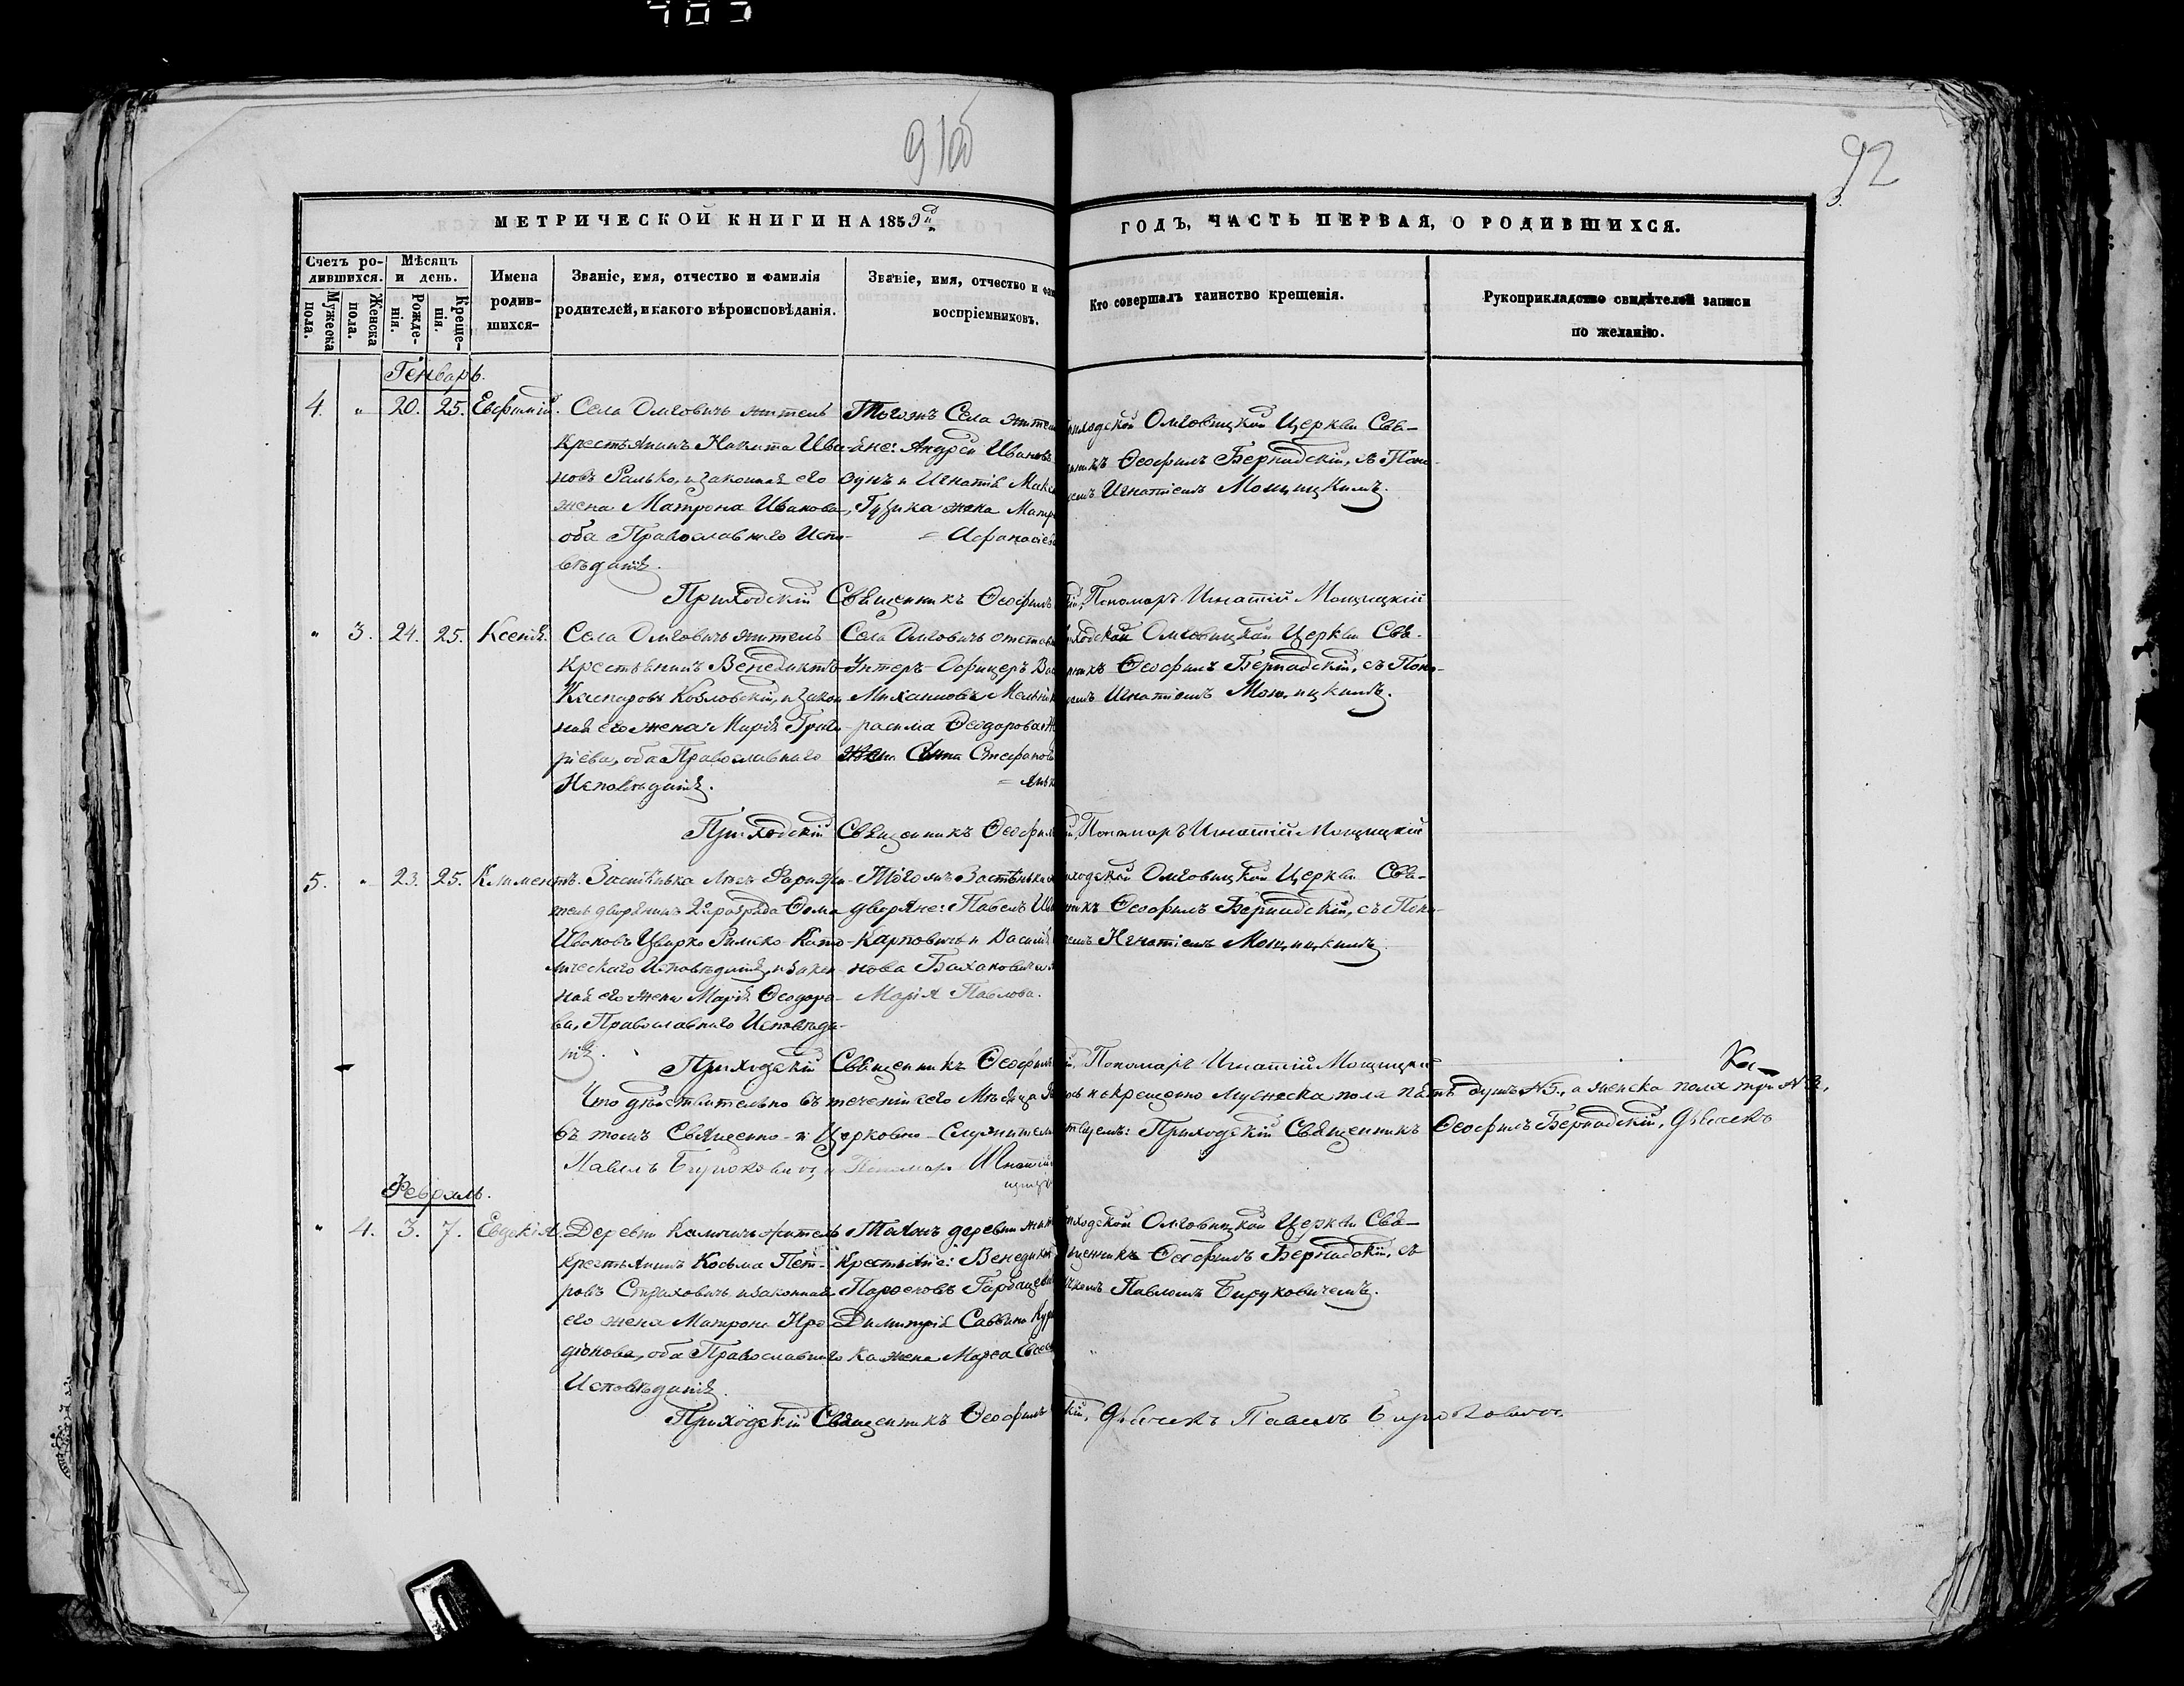 91об
92
3.
МЕТРИЧЕСКОЙ КНИГИ НА 1859й
ГОДЪ, ЧАСТЬ ПЕРВАЯ, О РОДИВШИХСЯ.
Счетъ ро-
дившихся.
Мужеска
пола.
Женска
пола.
Мѣсяцъ
и день.
Рожде-
нія.
Креще-
нія.
Имена
родив-
шихся-
Званіе, имя, отчество и фамилія
родителей, и какого вѣроисповѣданія.
Званіе, имя, отчество и фам
воспріемниковъ.
Кто совершалъ таинство крещенія.
Рукоприкладство свидѣтелей записи
по желанію.
Генварь.
4. " 20. 25. Евфимій.
Села Омговичъ житель
крестьянинъ Никита Ива-
новъ Ралько, и законная его
жена Матрона Иванова,
оба Православнаго Испо-
вѣданія.
Тогожъ Села жител
яне: Андрей Ивановъ
сунъ и Игнатія Макс
Гузика жена Матр
= Афанасіев
риходской Омговицкой Церкви Свя-
щенникъ Ѳеофилъ Бернадскій, съ Поно-
емъ Игнатіемъ Мощицкимъ.
Приходскій Священникъ Ѳеофилъ
кій, Пономарь Игнатій Мощицкій
" 3. 24. 25. Ксенія.
Села Омговичъ житель
Крестьянинъ Венедиктъ
Каспаровъ Козловскій, и закон-
ная его жена Марія Григо-
ріева, оба Православнаго
Исповѣданія.
Села Омговичъ отстав
Унтеръ-Офицеръ Вас
Михаиловъ Мельник
расима Ѳеодорова
жена Анна Стефанов
риходской Омговицкой Церкви Свя-
щенникъ Ѳеофилъ Бернадскій, съ Поно-
емъ Игнатіемъ Мощицкимъ.
Приходскій Священникъ Ѳеофил
ій, Пономарь Игнатій Мощицкій
5. " 23. 25. Климентъ.
Застѣнка Лясъ Фарня жи-
тель дворянинъ 2го разряда Ѳома
Ивановъ Цвирко Римско-Като-
лическаго Исповѣданія, и закон-
ная его жена Марія Ѳеодоро-
ва, Православнаго Исповѣда-
нія.
Тогожъ Застѣнка
дворяне: Павелъ Ив
Карповичъ и Василія
нова Бахановича
Марія Павлова.
риходской Омговицкой Церкви Свя-
щенникъ Ѳеофилъ Бернадскій, съ Поно-
емъ Игнатіемъ Мощицкимъ.
Приходскій Священникъ Ѳеофилъ
ій, Пономарь Игнатій Мощицкій
Что дѣйствительно въ теченіи сего Мѣсяца
ось и крещено мужеска пола пять душъ №5., а женска пола три №3,
въ томъ Священно- и Церковно-Служители
ствуемъ: Приходскій Священникъ Ѳеофилъ Бернадскій, Дьячекъ
Павелъ Бируковичъ, и Пономарь Игнатій
Февраль.
" 4. 3. 7. Евдокія.
Деревни Каличичъ житель
крестьянинъ Косьма Пет-
ровъ Страховичъ, и законная
его жена Матрона Иро-
діонова, оба Православнаго
Исповѣданія.
Таяжъ деревни жит
крестьяне: Венедикт
Парѳеновъ Гарбацеви
Димитрія Саввина Кур
ка жена Марѳа Евсе
риходской Омговицкой Церкви Свя-
щенникъ Ѳеофилъ Бернадскій, съ
чкомъ Павломъ Бируковичемъ.
Приходскій Священникъ Ѳеофилъ
кій, Дьячекъ Павелъ Бируковичъ